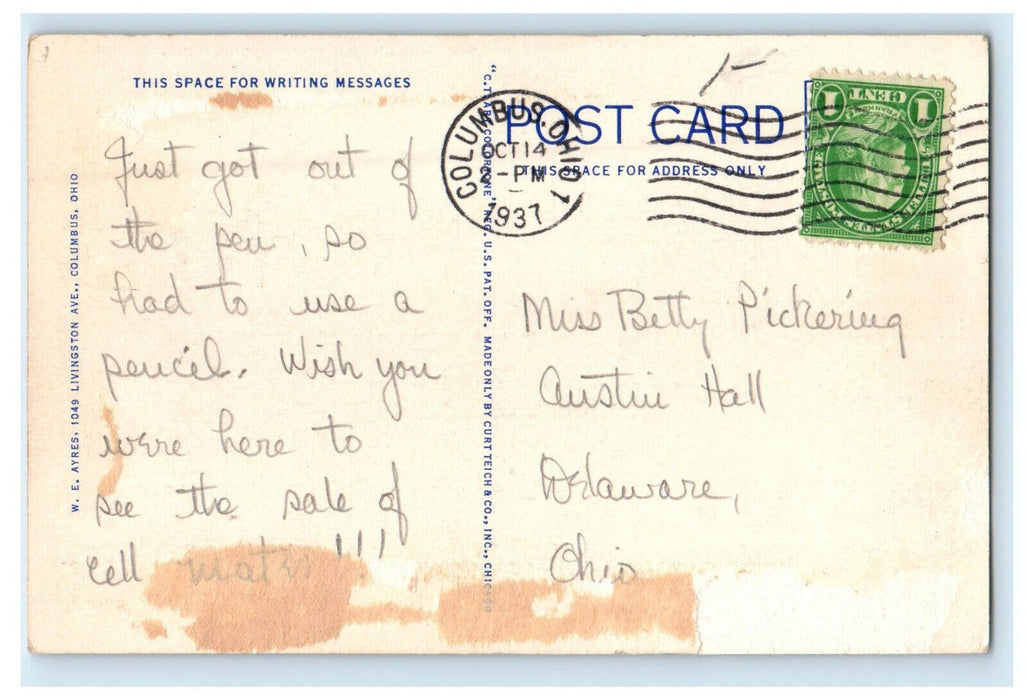 THIS SPACE FOR WRITING MESSAGES
Just got out of
the pen, so
had to use a
pencil. Wish you
were here to
see the sale of
cell mates!!!
W. E. AYRES, 1049 LIVINGSTON AVE., COLUMBUS, OHIO
"C.T. ART-COLORTONE" REG. U.S. PAT. OFF. MADE ONLY BY CURT TEICH & CO., INC., CHICAGO
POST CARD
THIS SPACE FOR ADDRESS ONLY
COLUMBUS, OHIO 1
OCT 14
-PM
1937
1 CENT 1
Miss Betty Pickering
Austin Hall
Delaware,
Ohio